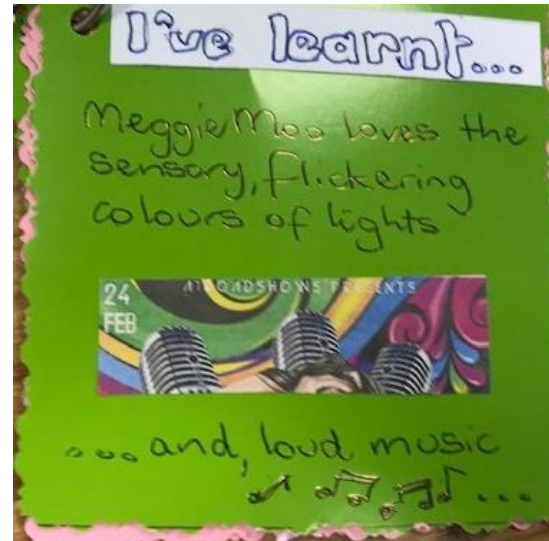 I've learnt...
Meggie Moo loves the
sensory, flickering
colours of lights
24
FEB
ROADSHOWS PRESENTS
...and, loud music
...